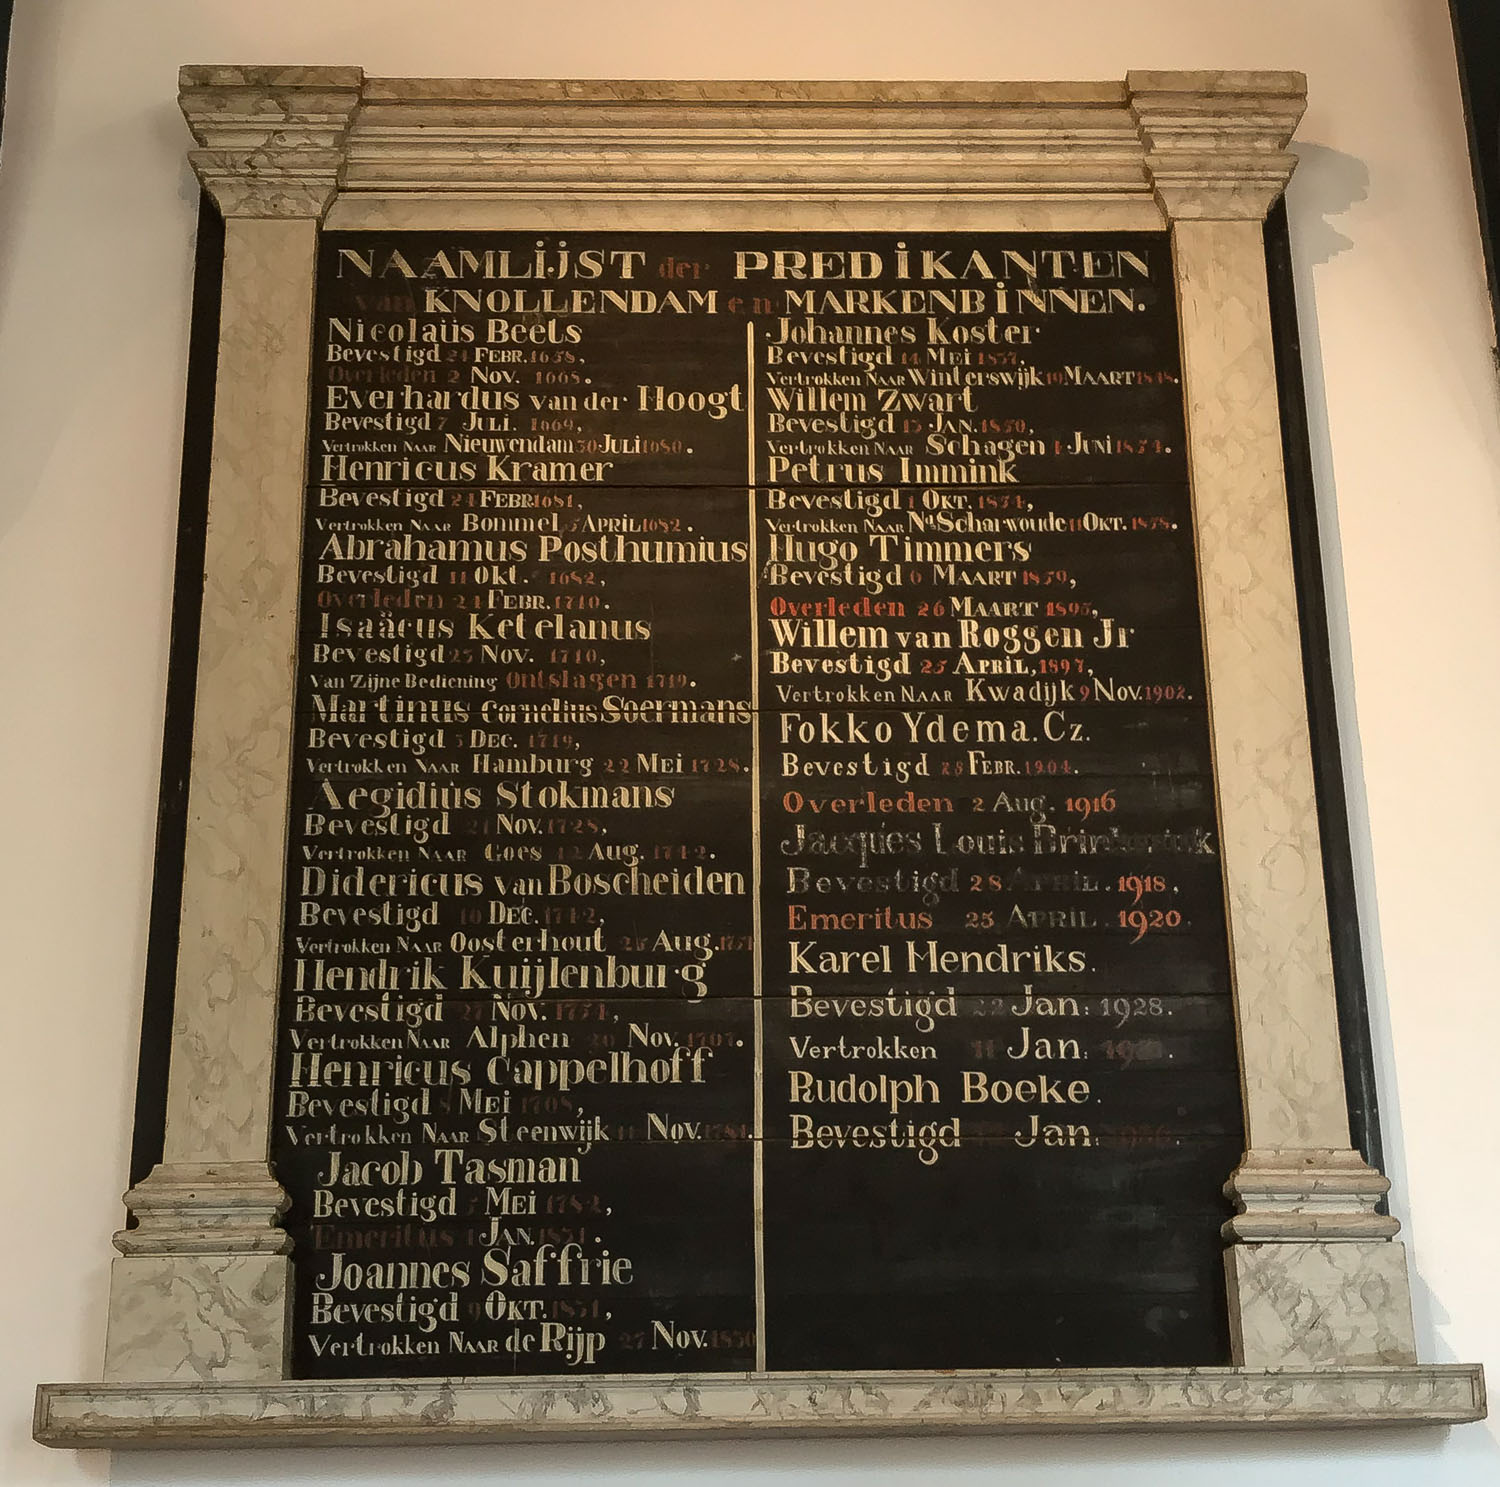 NAAMLIJST der PREDIKANTEN
van KNOLLENDAM en MARKENBINNEN.
Nicolaüs Beets
Bevestigd 24 FEBR. 1658,
Overleden 2 NOV. 1668.
Everhardus van der Hoogt
Bevestigd 7 JULI. 1669,
Vertrokken NAAR Nieuwendam 30 JULI 1680.
Henricus Kramer
Bevestigd 24 FEBR 1681,
Vertrokken NAAR Bommel 5 APRIL 1682.
Abrahamus Posthumius
Bevestigd 11 Okt. 1682,
Overleden 24 FEBR. 1710.
Isaäcus Ketelanus
Bevestigd 23 Nov. 1710,
Van Zijne Bediening Ontslagen 1719.
Martinus Cornelius Soermans
Bevestigd 3 DEC. 1719,
Vertrokken NAAR Hamburg 22 MEI 1728.
Aegidius Stokmans
Bevestigd 21 Nov. 1728,
Vertrokken NAAR Goes 12 Aug. 1742.
Didericus van Boscheiden
Bevestigd 10 DEC. 1742,
Vertrokken NAAR Oosterhout Aug.
Hendrik Kuijlenburg
Bevestigd 27 Nov. 1754,
Vertrokken NAAR Alphen Nov.
Henricus Cappelhoff
Bevestigd 8 MEI
Vertrokken NAAR Steenwijk 11 Nov. 1781.
Jacob Tasman
Bevestigd 5 MEI 1782,
Emeritus 1 JAN. 1831.
Joannes Saffrie
Bevestigd 9 OKT. 1831,
Vertrokken NAAR de Rijp 27 Nov.
Johannes Koster
Bevestigd 14 MEI 1837,
Vertrokken NAAR Winterswijk 19 MAART 1848.
Willem Zwart
Bevestigd 13 JAN. 1850,
Vertrokken NAAR Schagen 4 JUNI 1854.
Petrus Immink
Bevestigd 1 OKT. 1854,
Vertrokken NAAR Nd Scharwoude 11 OKT. 1858.
Hugo Timmers
Bevestigd 6 MAART 1859,
Overleden 26 MAART 1895,
Willem van Roggen Jr
Bevestigd 25 APRIL, 1897,
Vertrokken NAAR Kwadijk 9 Nov. 1902.
Fokko Ydema. Cz.
Bevestigd 28 FEBR. 1904.
Overleden 2 Aug. 1916
Jacques Louis
Bevestigd 28 APRIL. 1918,
Emeritus 25 APRIL. 1920.
Karel Hendriks.
Bevestigd 22 Jan: 1928.
Vertrokken 11 Jan:
Rudolph Boeke.
Bevestigd Jan: 1936.